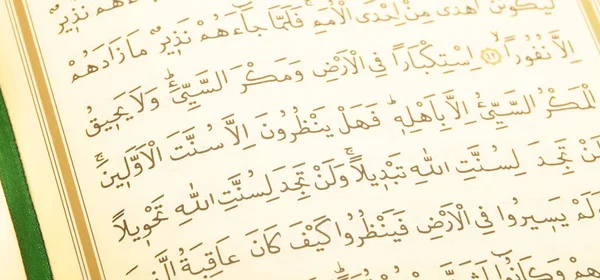 لَيَكُونُنَّ اَهْدٰى مِنْ اِحْدَى الْاُمَمِۚ فَلَمَّا جَٓاءَهُمْ نَذٖيرٌ
مَا زَادَهُمْ اِلَّا نُفُورًاۙ ﴿٤٢﴾ اِسْتِكْبَارًا فِى الْاَرْضِ وَمَكْرَ السَّيِّئِۜ وَلَا يَحٖيقُ
الْمَكْرُ السَّيِّئُ اِلَّا بِاَهْلِهٖۜ فَهَلْ يَنْظُرُونَ اِلَّا سُنَّتَ الْاَوَّلٖينَۚ
تَجِدَ لِسُنَّتِ اللّٰهِ تَبْدٖيلًاۚ وَلَنْ تَجِدَ لِسُنَّتِ اللّٰهِ تَحْوٖيلًا
يَسٖيرُوا فِى الْاَرْضِ فَيَنْظُرُوا كَيْفَ كَانَ عَاقِبَةُ
وَكَانُٓوا